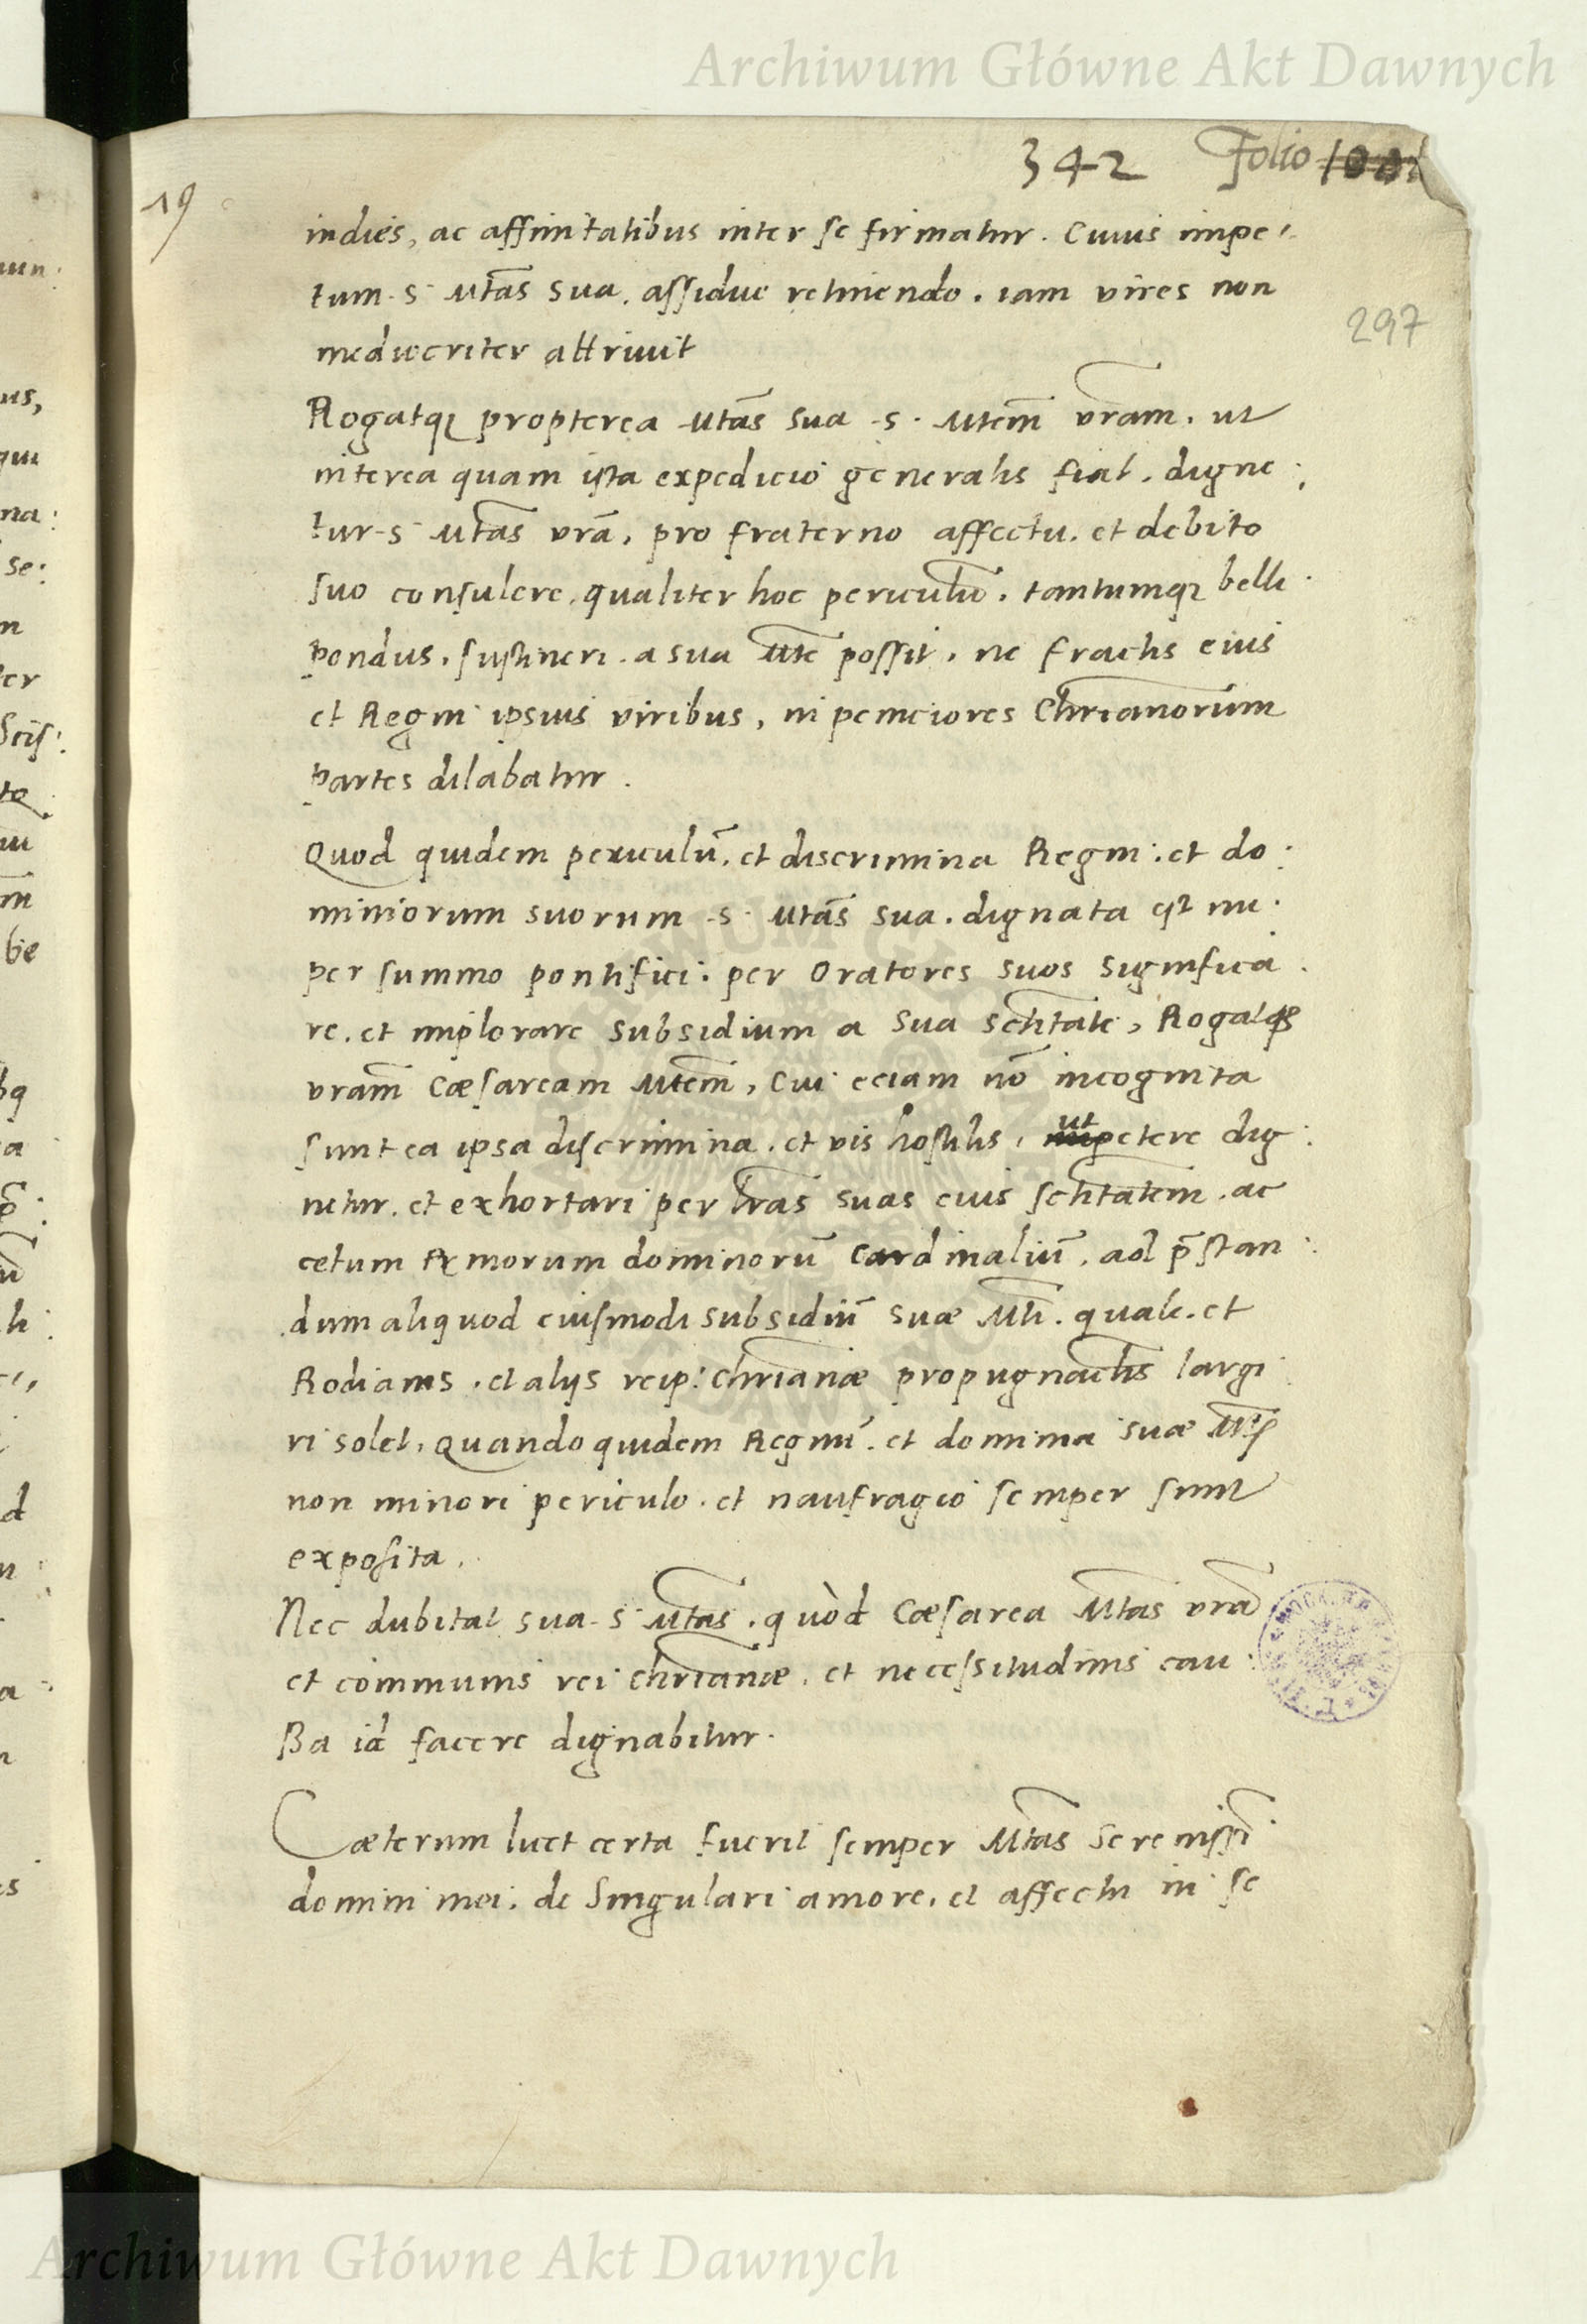 Archiwum Główne Akt Dawnych
342 Folio
19
indies, ac affinitatibus inter se firmatur. Cuius impe:
tum. S. Mtas sua, assidue retinendo. iam vires non
297
mediocriter attrivit
Rogatq; propterea Mtas sua S. Mtem vram, ut
interea quam ista expedicio generalis fiat, digne:
tur S. Mtas vra, pro fraterno affectu, et debito
suo consulere, qualiter hoc periculu, tantumq; belli
pondus, sustineri a sua Mte possit, ne fractis eius
et Regni ipsius viribus, in penitiores Chrianorum
partes dilabatur.
Quod quidem periculū, et discrimina Regni, et do:
miniorum suorum S. Mtas sua, dignata est nu:
per summo pontifici: per Oratores suos significa:
re, et implorare subsidium a Sua Sctitate, Rogatq;
vram Cæsaream Mtem, Cui eciam nō incognita
sunt ea ipsa discrimina, et vis hostilis, ut petere dig:
netur, et exhortari per lras suas eius Sctitatem, ac
cetum Rmorum dominorū Cardinaliū, ad p̄stan:
dum aliquod eiusmodi subsidiū suæ Mti. quale et
Rodianis, et alijs reip: chrianæ propugnaclis largi
ri solet, Quandoquidem Regnū, et dominia suæ Mtis
non minori periculo, et naufragio semper sunt
exposita.
Nec dubitat sua S. Mtas, quòd Cæsarea Mtas vra
et communis rei chrianæ, et necessitudinis cau:
ßa id facere dignabitur.
Cæterum licet certa fuerit semper Mtas Serenissi
domini mei, de Singulari amore, et affectu in se
Archiwum Główne Akt Dawnych